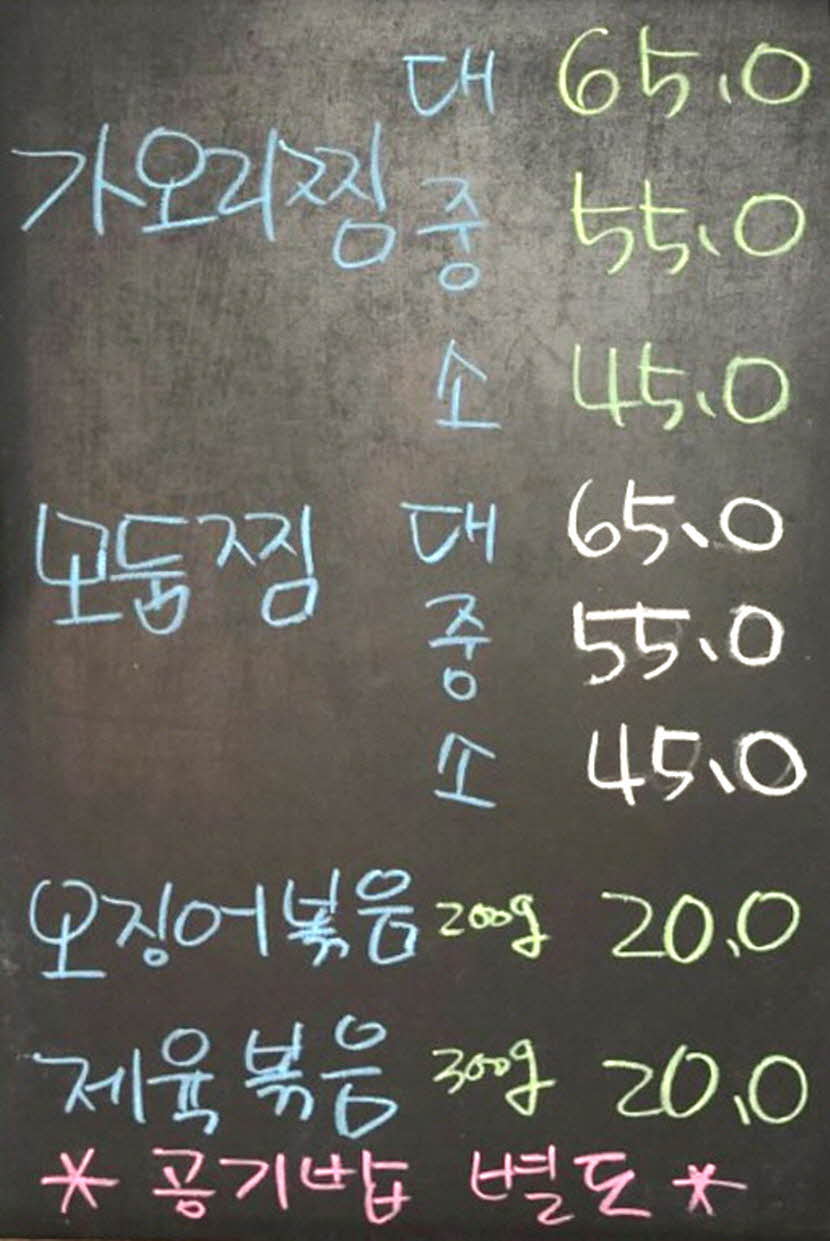 대 65.0
가오리찜 중 55.0
소 45.0
모둠찜 대 65.0
중 55.0
소 45.0
오징어볶음 200g 20.0
제육볶음 300g 20.0
* 공기밥 별도 *